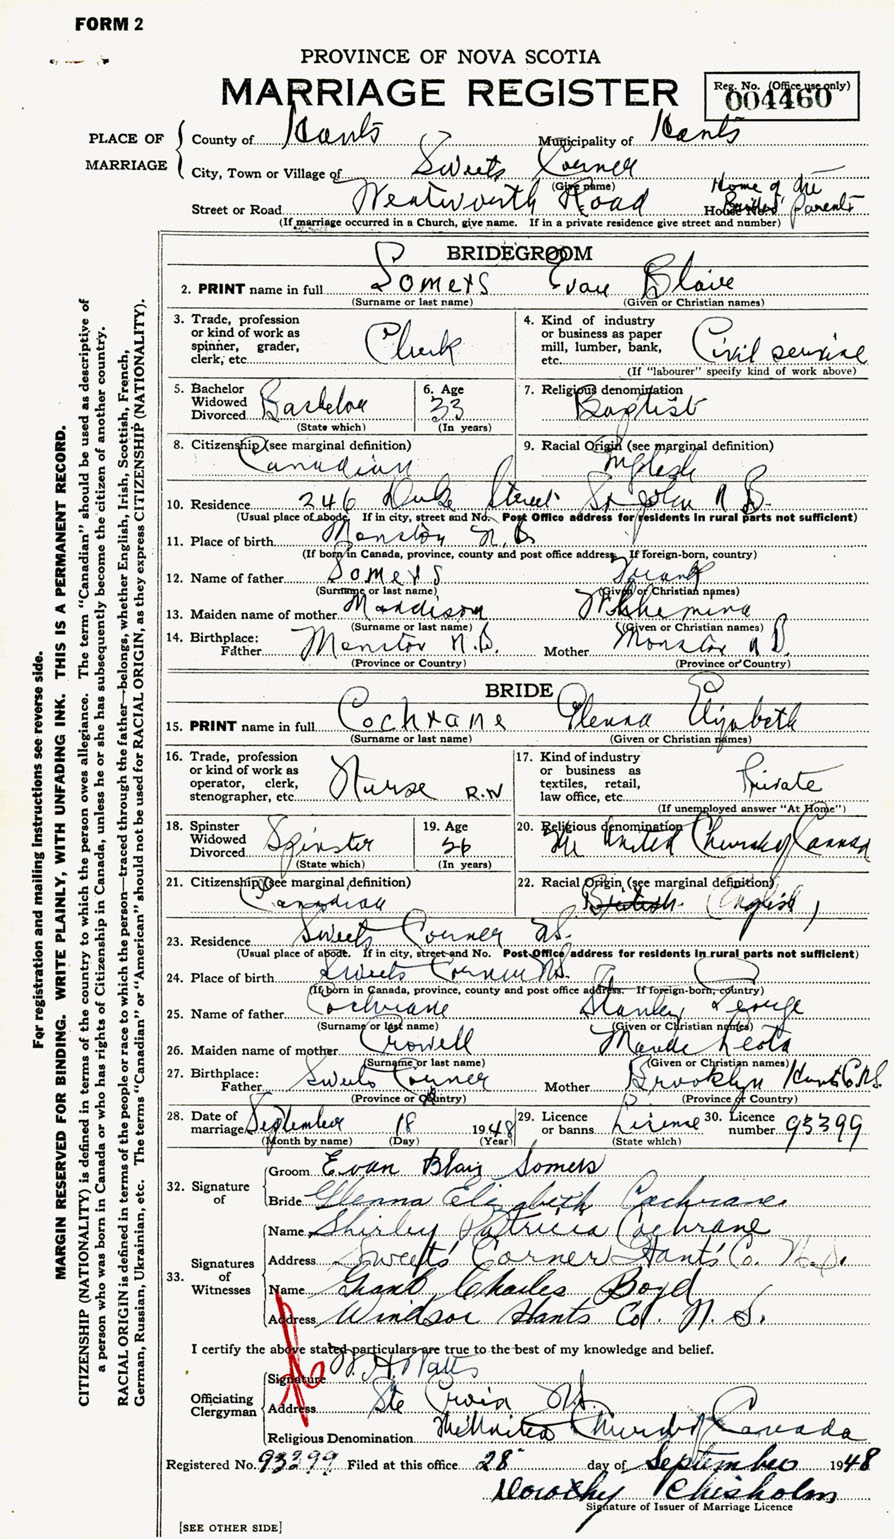 FORM 2
PROVINCE OF NOVA SCOTIA
MARRIAGE REGISTER
Reg. No. (Office use only)
004460
PLACE OF MARRIAGE
County of Hants Municipality of Hants
City, Town or Village of Sweets Corner
(Give name)
Street or Road Wentworth Road House No. Home of the Brides' Parents
(If marriage occurred in a Church, give name. If in a private residence give street and number)
BRIDEGROOM
2. PRINT name in full Somers Evan Blair
(Surname or last name) (Given or Christian names)
3. Trade, profession or kind of work as spinner, grader, clerk, etc. Clerk
4. Kind of industry or business as paper mill, lumber, bank, etc. Civil service
(If "labourer" specify kind of work above)
5. Bachelor Widowed Divorced Bachelor
(State which)
6. Age 33
(In years)
7. Religious denomination Baptist
8. Citizenship (see marginal definition) Canadian
9. Racial Origin (see marginal definition) English
10. Residence 246 Duke Street St John N B.
(Usual place of abode. If in city, street and No. Post Office address for residents in rural parts not sufficient)
11. Place of birth Moncton N B
(If born in Canada, province, county and post office address. If foreign-born, country)
12. Name of father Somers Frank
(Surname or last name) (Given or Christian names)
13. Maiden name of mother Maddison
(Surname or last name) (Given or Christian names)
14. Birthplace: Father Moncton N.B. Mother Moncton N B.
(Province or Country) (Province or Country)
BRIDE
15. PRINT name in full Cochrane Glenna Elizabeth
(Surname or last name) (Given or Christian names)
16. Trade, profession or kind of work as operator, clerk, stenographer, etc. Nurse R.N
17. Kind of industry or business as textiles, retail, law office, etc. Private
(If unemployed answer "At Home")
18. Spinster Widowed Divorced Spinster
(State which)
19. Age 26
(In years)
20. Religious denomination The United Church of Canada
21. Citizenship (see marginal definition) Canadian
22. Racial Origin (see marginal definition) British (English)
23. Residence Sweets Corner N.S.
(Usual place of abode. If in city, street and No. Post Office address for residents in rural parts not sufficient)
24. Place of birth Sweets Corner N.S.
(If born in Canada, province, county and post office address. If foreign-born, country)
25. Name of father Cochrane Stanley George
(Surname or last name) (Given or Christian names)
26. Maiden name of mother Crowell Maude Leota
(Surname or last name) (Given or Christian names)
27. Birthplace: Father Sweets Corner Mother Brooklyn Hants Co N.S.
(Province or Country) (Province or Country)
28. Date of marriage September 18 1948
(Month by name) (Day) (Year)
29. Licence or banns License
(State which)
30. Licence number 93399
32. Signature of
Groom Evan Blair Somers
Bride Glenna Elizabeth Cochrane.
33. Signatures of Witnesses
Name Shirley Patricia Cochrane
Address Sweet's Corner Hant's Co. N.S.
Name Grant Charles Boyd
Address Windsor Hants Co. N. S.
I certify the above stated particulars are true to the best of my knowledge and belief.
Officiating Clergyman
Signature Watts
Address Ste Croix N.S.
Religious Denomination The United Church of Canada
Registered No. 93399 Filed at this office 28 day of September 1948
Dorothy Chisholm
Signature of Issuer of Marriage Licence
[SEE OTHER SIDE]
For registration and mailing instructions see reverse side.
MARGIN RESERVED FOR BINDING. WRITE PLAINLY, WITH UNFADING INK. THIS IS A PERMANENT RECORD.
CITIZENSHIP (NATIONALITY) is defined in terms of the country to which the person owes allegiance. The term "Canadian" should be used as descriptive of
a person who was born in Canada or who has rights of Citizenship in Canada, unless he or she has subsequently become the citizen of another country.
RACIAL ORIGIN is defined in terms of the people or race to which the person—traced through the father—belongs, whether English, Irish, Scottish, French,
German, Russian, Ukrainian, etc. The terms "Canadian" or "American" should not be used for RACIAL ORIGIN, as they express CITIZENSHIP (NATIONALITY).